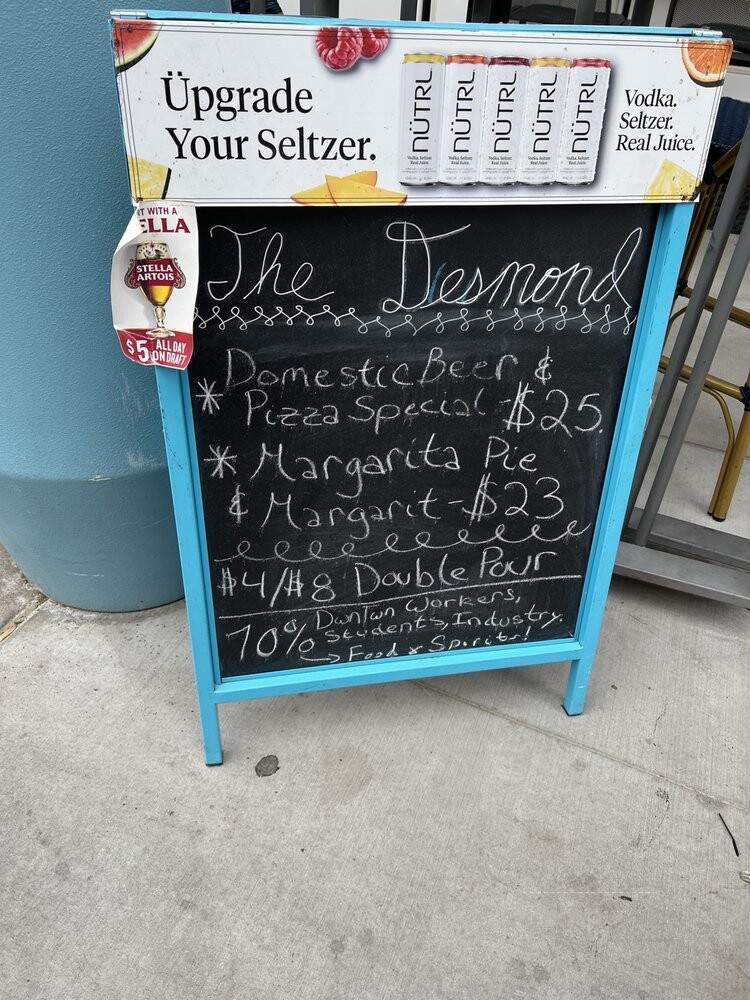 Üpgrade
Your Seltzer.
NÜTRL
NÜTRL
NÜTRL
NÜTRL
NÜTRL
Vodka.
Seltzer.
Real Juice.
T WITH A
ELLA
STELLA
ARTOIS
$5 ALL DAY
ON DRAFT
The Desmond
Domestic Beer &
* Pizza Special - $25.
* Margarita Pie
& Margarit - $23
$4/$8 Double Pour
10% Dwntwn Workers,
Students, Industry.
→ Food & Spirits!